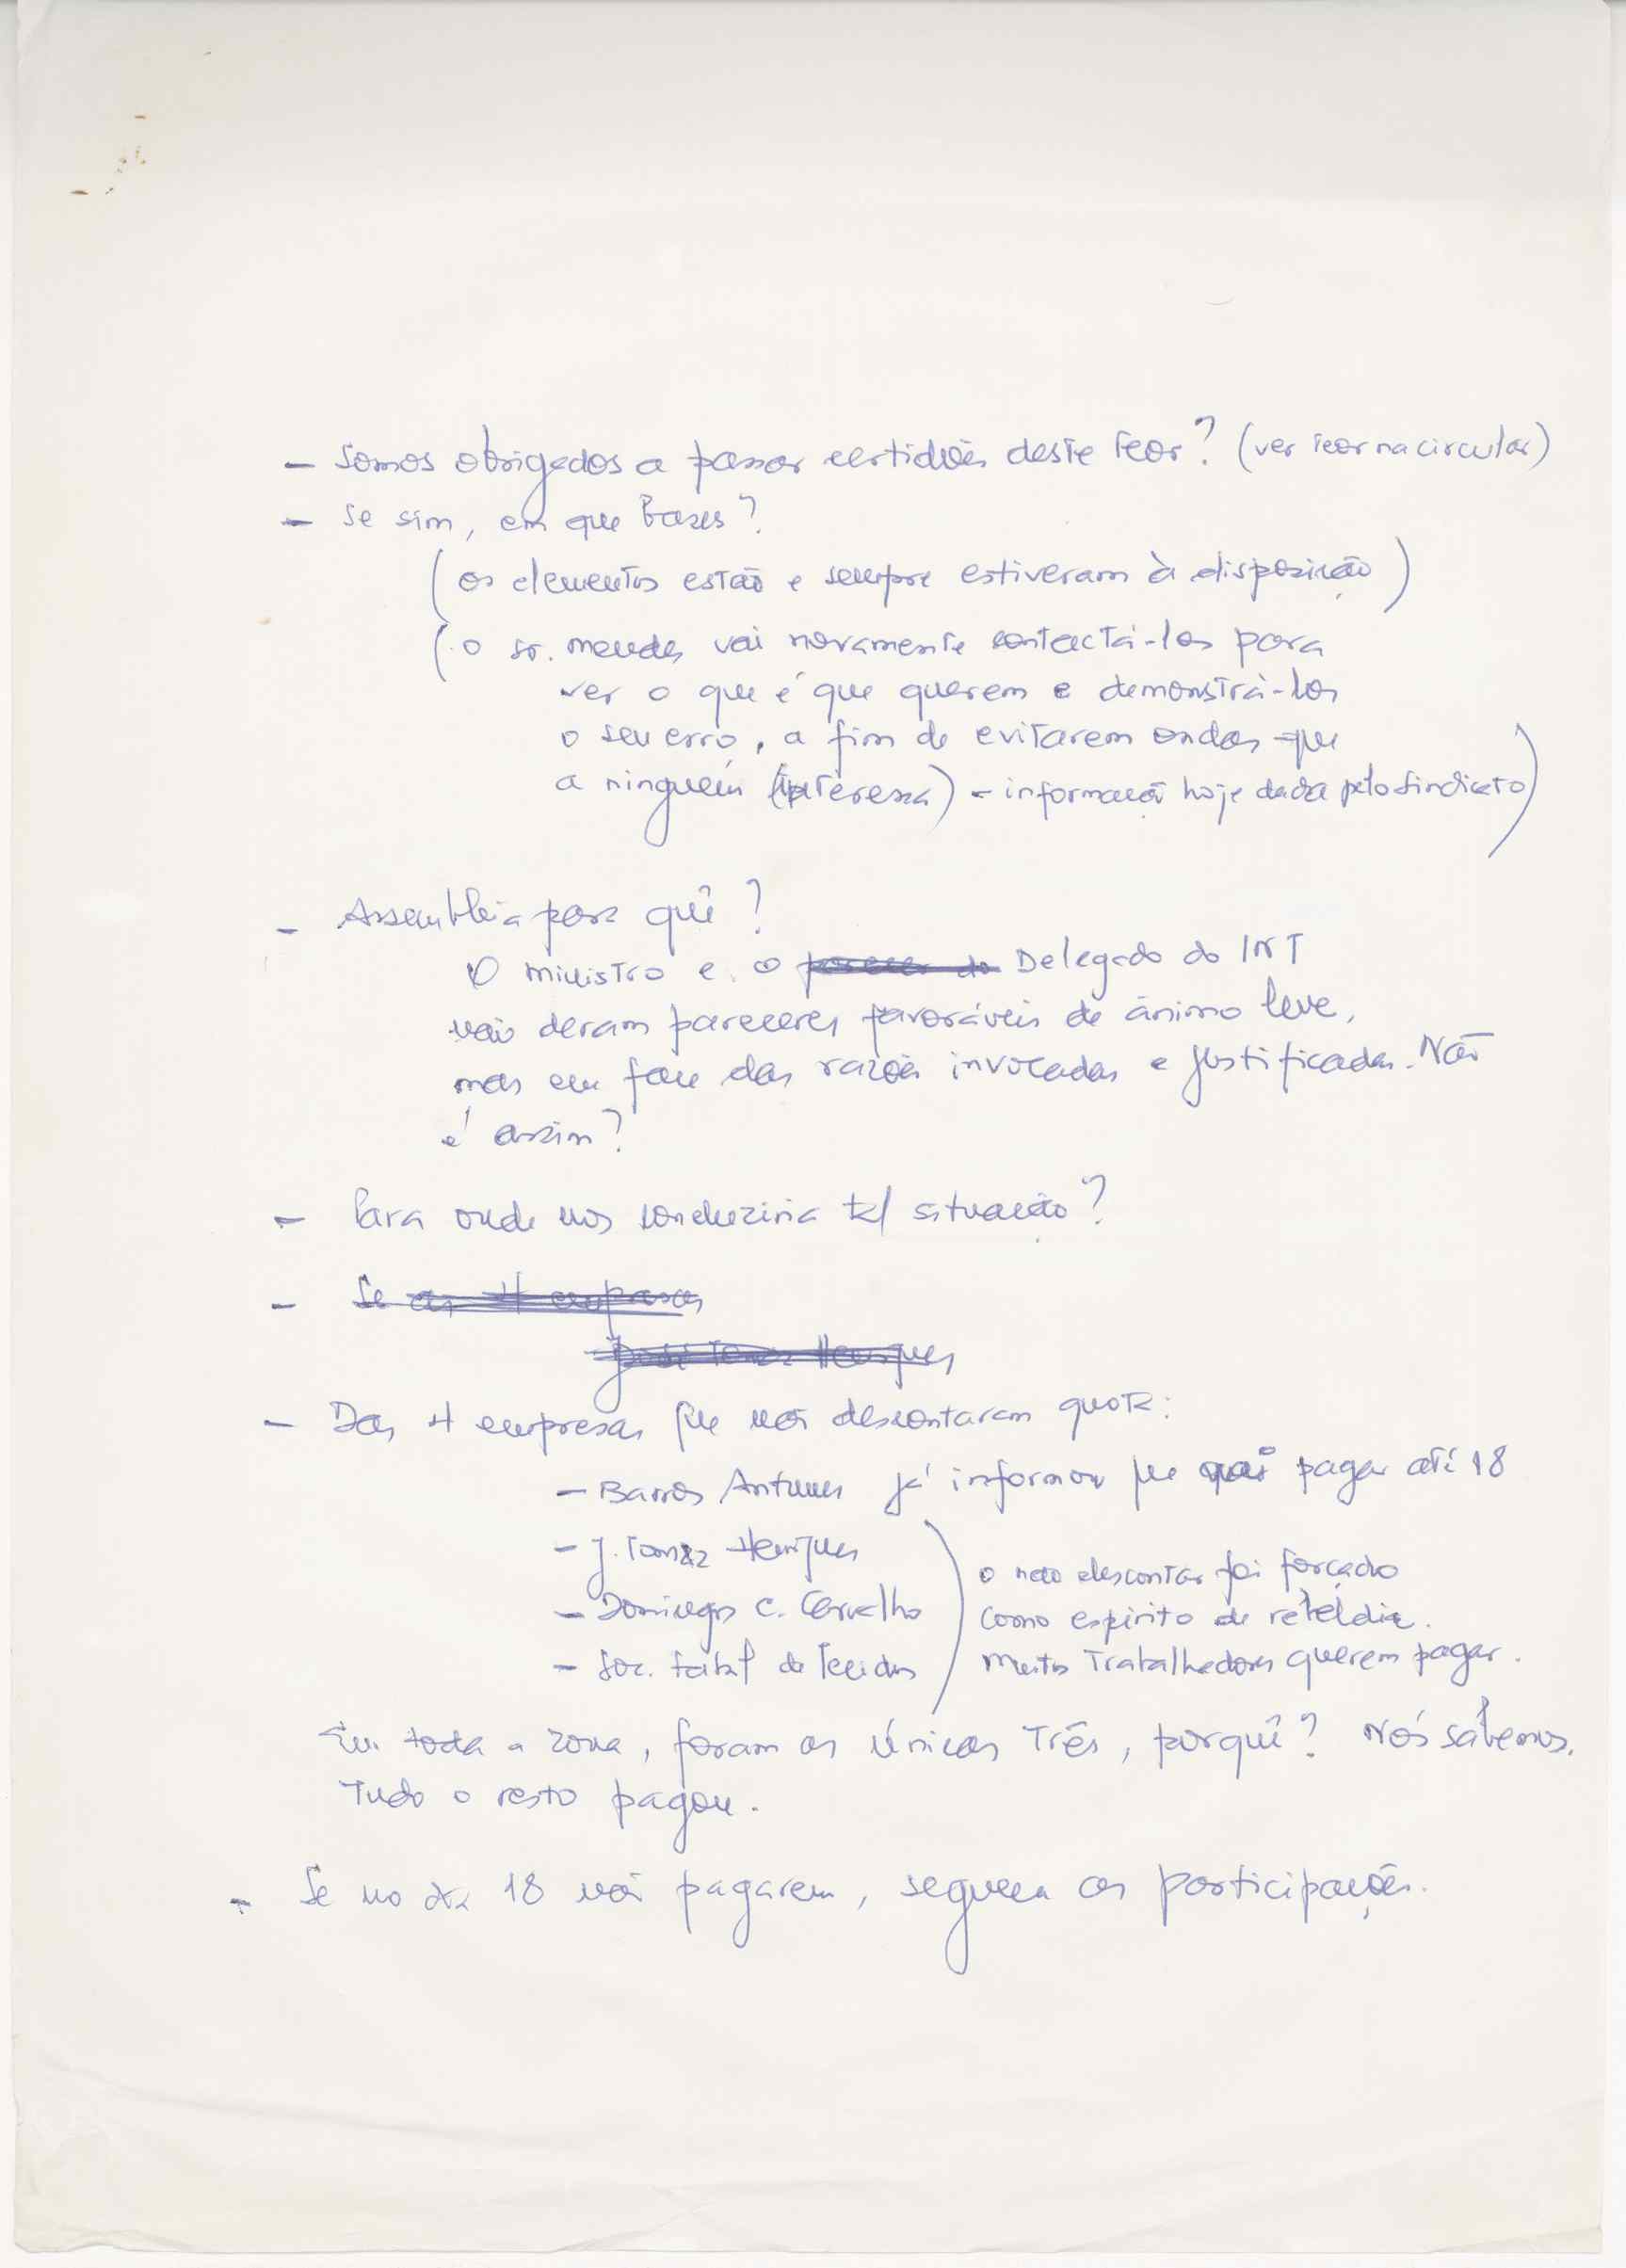 - Somos obrigados a passar certidões deste teor? (ver teor na circular)
- Se sim, em que bases?
(os elementos estão e sempre estiveram à disposição)
(o sr. Mendes vai novamente contactá-los para
ver o que é que querem e demonstrá-los
o seu erro, a fim de evitarem ondas que
a ninguém (interessa) - informação hoje dada pelo Sindicato)
- Assembleia para quê?
O ministro e o parecer do Delegado do INT
não deram pareceres favoráveis de ânimo leve,
mas em face das razões invocadas e justificadas. Não
é assim?
- Para onde nos conduziria tal situação?
- Se as 4 empresas
José Tomaz Henriques
- Das 4 empresas que não descontaram quota:
- Barros Antunes já informou que vai pagar até 18
- J. Tomaz Henriques
- Domingos C. Carvalho
- Soc. Fabril de Tecidos
o não descontar foi forçado
como espírito de rebeldia.
Muitos trabalhadores querem pagar.
Em toda a zona, foram os únicos três, porquê? Nós sabemos.
Tudo o resto pagou.
- Se no dia 18 não pagarem, seguem as participações.